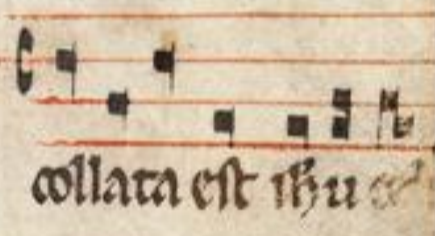 collata est ihu